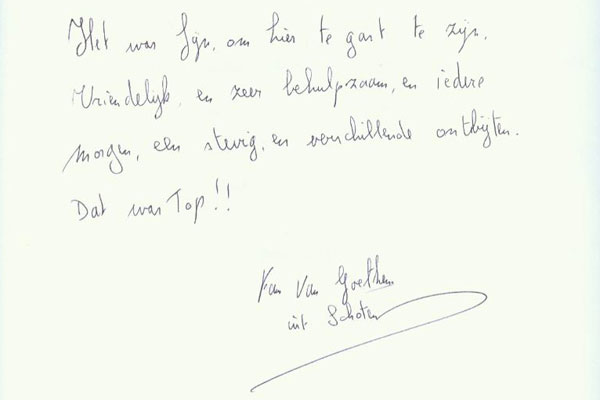 Het was fijn, om hier te gast te zijn.
Vriendelijk, en zeer behulpzaam, en iedere
morgen, een stevig, en verschillende ontbijten.
Dat was Top!!
Van Goethem
uit Schoten